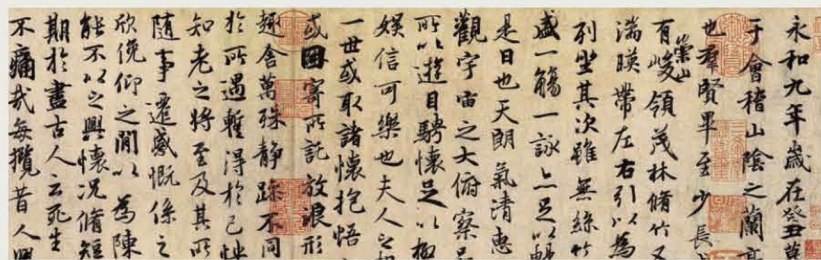 永和九年歲在癸丑
于會稽山陰之蘭亭
也羣賢畢至少長
有崇山峻領茂林脩竹又
湍暎帶左右引以為
列坐其次雖無絲竹
盛一觴一詠亦足以暢
是日也天朗氣清惠
觀宇宙之大俯察品
所以遊目騁懷足以極
娛信可樂也夫人之相
一世或取諸懷抱悟
或因寄所託放浪形
趣舍萬殊靜躁不同
於所遇暫得於己快
知老之將至及其所
隨事遷感慨係之
欣俛仰之閒以為陳
能不以之興懷況脩短
期於盡古人云死生
不痛哉每攬昔人興